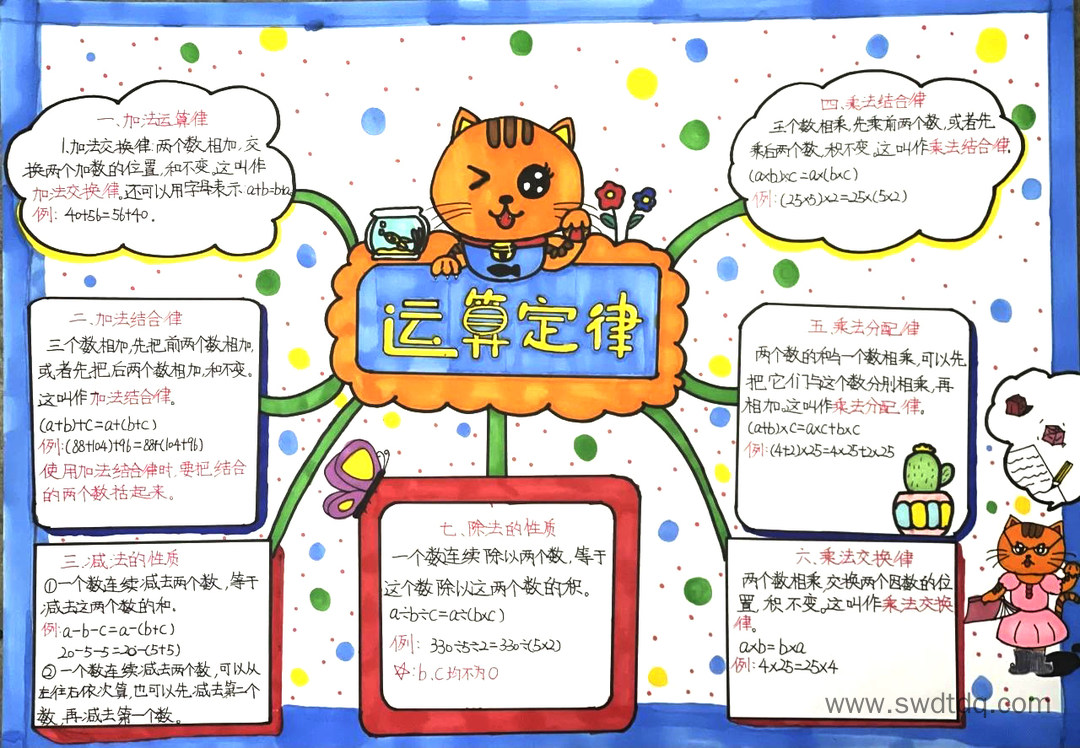 运算定律
一、加法运算律
1.加法交换律:两个数相加,交
换两个加数的位置,和不变。这叫作
加法交换律。还可以用字母表示:a+b=b+a
例:40+56=56+40.
二、加法结合律
三个数相加,先把前两个数相加,
或者先把后两个数相加,和不变。
这叫作加法结合律。
(a+b)+c=a+(b+c)
例:(88+104)+96=88+(104+96)
使用加法结合律时,要把结合
的两个数括起来。
三、减法的性质
①一个数连续减去两个数,等于
减去这两个数的和.
例:a-b-c=a-(b+c)
20-5-5=20-(5+5)
②一个数连续减去两个数,可以从
左往右依次算,也可以先减去第二个
数,再减去第一个数。
四、乘法结合律
三个数相乘,先乘前两个数,或者先
乘后两个数,积不变。这叫作乘法结合律.
(a×b)×c=a×(b×c)
例:(25×5)×2=25×(5×2)
五、乘法分配律
两个数的和与一个数相乘,可以先
把它们与这个数分别相乘,再
相加。这叫作乘法分配律。
(a+b)×c=a×c+b×c
例:(4+2)×25=4×25+2×25
六、乘法交换律
两个数相乘,交换两个因数的位
置,积不变。这叫作乘法交换
律。
a×b=b×a
例:4×25=25×4
七、除法的性质
一个数连续除以两个数,等于
这个数除以这两个数的积。
a÷b÷c=a÷(b×c)
例:330÷5÷2=330÷(5×2)
☆:b.c均不为0
www.swdtdq.com